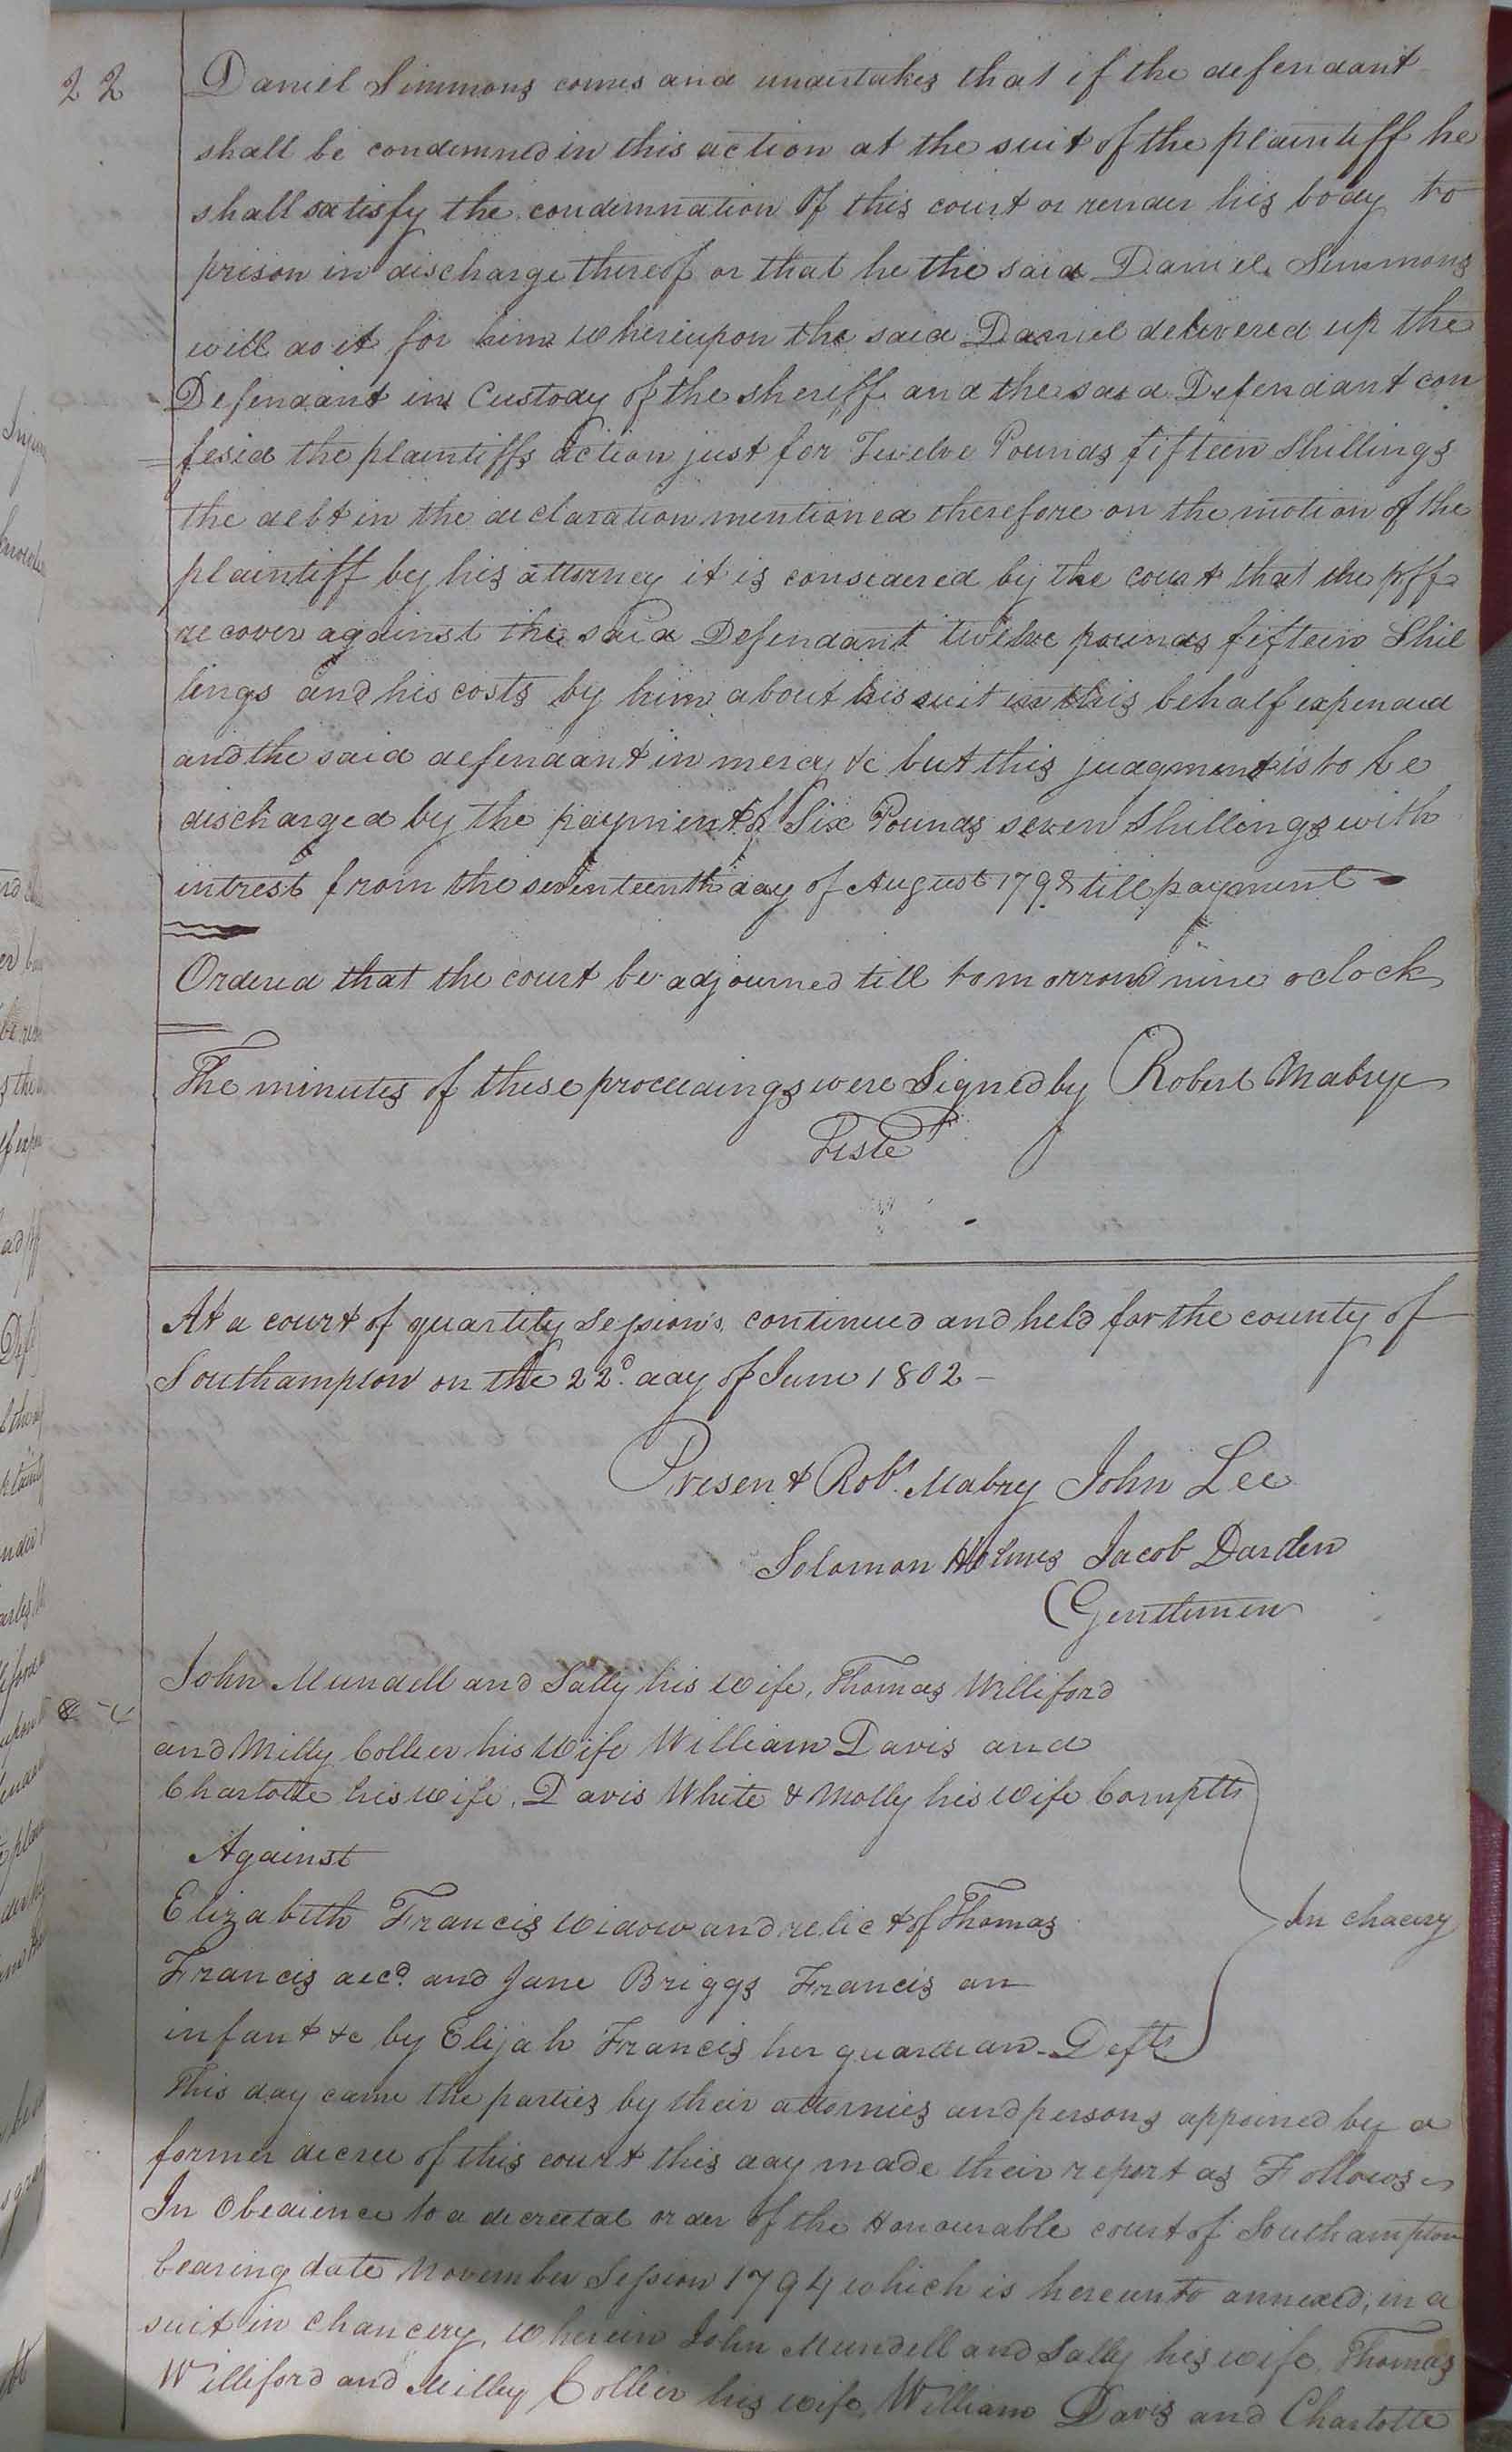 22
Daniel Simmons comes and undertakes that if the defendant
shall be condemned in this action at the suit of the plaintiff he
shall satisfy the condemnation of this court or render his body to
prison in discharge thereof or that he the said Daniel Simmons
will do it for him whereupon the said Daniel delivered up the
Defendant in Custody of the sheriff and the said Defendant con
fesid the plaintiffs action just for Twelve Pounds fifteen Shillings
the debt in the declaration mentioned therefore on the motion of the
plaintiff by his attorney it is considered by the court that the pff
recover against the said Defendant twelve pounds fifteen Shil
lings and his costs by him about his suit in this behalf expended
and the said defendant in mercy &c but this judgment is to be
discharged by the payment of Six Pounds seven Shillings with
intrest from the seventeenth day of August 1798 till payment
Ordered that the court be adjourned till tomorrow nine oclock
The minutes of these proceedings were Signed by Robert Mabry
Teste
At a court of quartely Sessions, continued and held for the county of
Southampton on the 22d. day of June 1802 -
Present Robt. Mabry John Lee
Solomon Holmes Jacob Darden
Gentlemen
John Mundell and Sally his Wife, Thomas Williford
and Milly Collier his Wife William Davis and
Charlotte his wife, Davis White & Molly his Wife Complts
Against
Elizabeth Francis Widow and relict of Thomas
In chacery
Francis decd. and Jane Briggs Francis an
infant &c by Elijah Francis her guardian - Defts
This day came the parties by their attornies and persons appoined by a
former decree of this court this day made their report as Follows
In Obedience to a decreetal order of the Honourable court of Southampton
bearing date November Session 1794 which is hereunto annexed, in a
suit in chancery, wherein John Mundell and Sally his wife, Thomas
Williford and Milley Collier his wife, William Davis and Charlotte